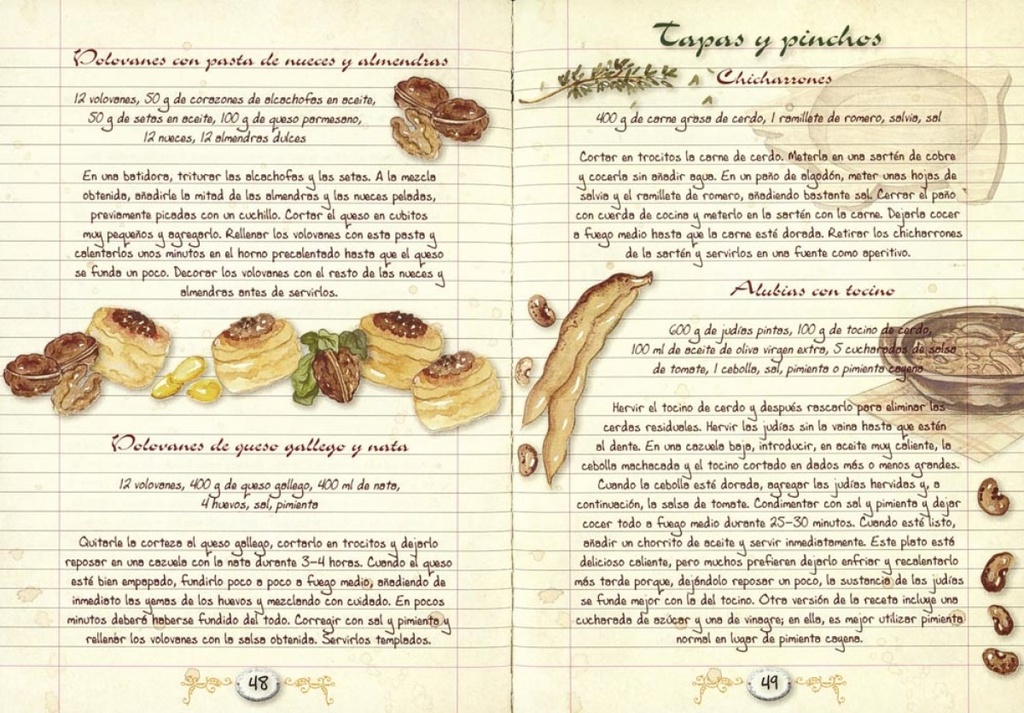 Volovanes con pasta de nueces y almendras
12 volovanes, 50 g de corazones de alcachofas en aceite,
50 g de setas en aceite, 100 g de queso parmesano,
12 nueces, 12 almendras dulces
En una batidora, triturar las alcachofas y las setas. A la mezcla
obtenida, añadirle la mitad de las almendras y las nueces peladas,
previamente picadas con un cuchillo. Cortar el queso en cubitos
muy pequeños y agregarlo. Rellenar los volovanes con esta pasta y
calentarlos unos minutos en el horno precalentado hasta que el queso
se funda un poco. Decorar los volovanes con el resto de las nueces y
almendras antes de servirlos.
Volovanes de queso gallego y nata
12 volovanes, 400 g de queso gallego, 400 ml de nata,
4 huevos, sal, pimienta
Quitarle la corteza al queso gallego, cortarlo en trocitos y dejarlo
reposar en una cazuela con la nata durante 3-4 horas. Cuando el queso
esté bien empapado, fundirlo poco a poco a fuego medio, añadiendo de
inmediato las yemas de los huevos y mezclando con cuidado. En pocos
minutos deberá haberse fundido del todo. Corregir con sal y pimienta y
rellenar los volovanes con la salsa obtenida. Servirlos templados.
48
Tapas y pinchos
Chicharrones
400 g de carne grasa de cerdo, 1 ramillete de romero, salvia, sal
Cortar en trocitos la carne de cerdo. Meterla en una sartén de cobre
y cocerla sin añadir agua. En un paño de algodón, meter unas hojas de
salvia y el ramillete de romero, añadiendo bastante sal. Cerrar el paño
con cuerda de cocina y meterlo en la sartén con la carne. Dejarla cocer
a fuego medio hasta que la carne esté dorada. Retirar los chicharrones
de la sartén y servirlos en una fuente como aperitivo.
Alubias con tocino
600 g de judías pintas, 100 g de tocino de cerdo,
100 ml de aceite de oliva virgen extra, 5 cucharadas de salsa
de tomate, 1 cebolla, sal, pimienta o pimienta cayena
Hervir el tocino de cerdo y después rascarlo para eliminar las
cerdas residuales. Hervir las judías sin la vaina hasta que estén
al dente. En una cazuela baja, introducir, en aceite muy caliente, la
cebolla machacada y el tocino cortado en dados más o menos grandes.
Cuando la cebolla esté dorada, agregar las judías hervidas y, a
continuación, la salsa de tomate. Condimentar con sal y pimienta y dejar
cocer todo a fuego medio durante 25-30 minutos. Cuando esté listo,
añadir un chorrito de aceite y servir inmediatamente. Este plato está
delicioso caliente, pero muchos prefieren dejarlo enfriar y recalentarlo
más tarde porque, dejándolo reposar un poco, la sustancia de las judías
se funde mejor con la del tocino. Otra versión de la receta incluye una
cucharada de azúcar y una de vinagre; en ella, es mejor utilizar pimienta
normal en lugar de pimienta cayena.
49